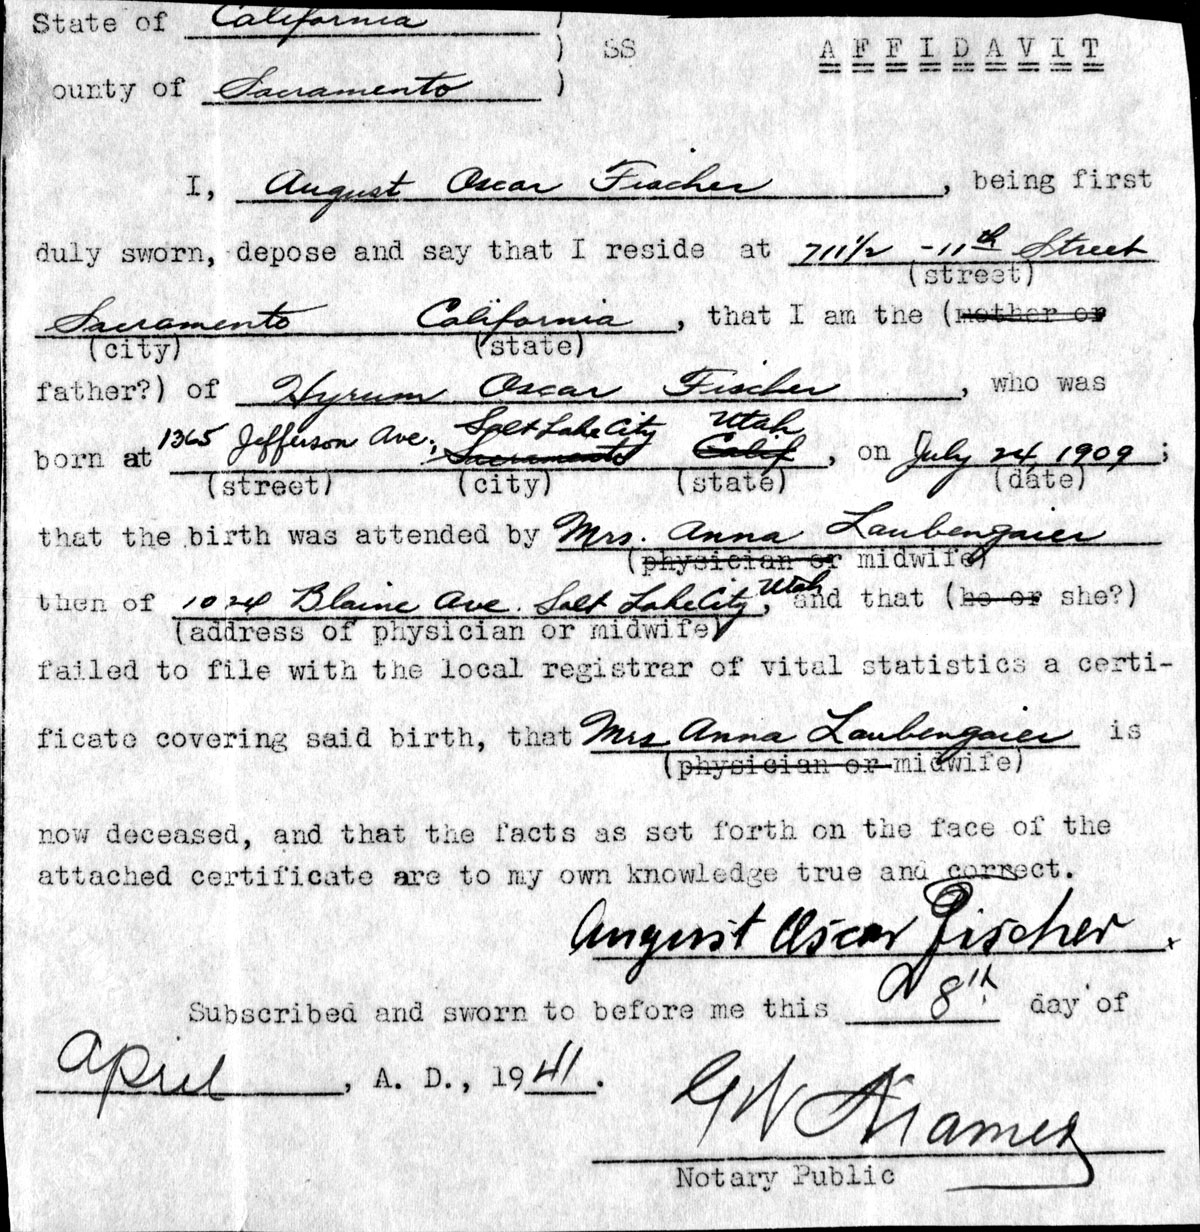 State of California )
) SS AFFIDAVIT
ounty of Sacramento )
I, August Oscar Fischer, being first
duly sworn, depose and say that I reside at 711½ - 11th Street
(street)
Sacramento California, that I am the (mother or
(city) (state)
father?) of Hyrum Oscar Fischer, who was
Salt Lake City Utah
born at 1365 Jefferson Ave, Sacramento Calif, on July 24, 1909;
(street) (city) (state) (date)
that the birth was attended by Mrs. Anna Laubengaier
(physician or midwife)
then of 1024 Blaine Ave. Salt Lake City, Utah and that (he or she?)
(address of physician or midwife)
failed to file with the local registrar of vital statistics a certi-
ficate covering said birth, that Mrs. Anna Laubengaier is
(physician or midwife)
now deceased, and that the facts as set forth on the face of the
attached certificate are to my own knowledge true and correct.
August Oscar Fischer
Subscribed and sworn to before me this 8th day of
April, A. D., 1941.
Notary Public